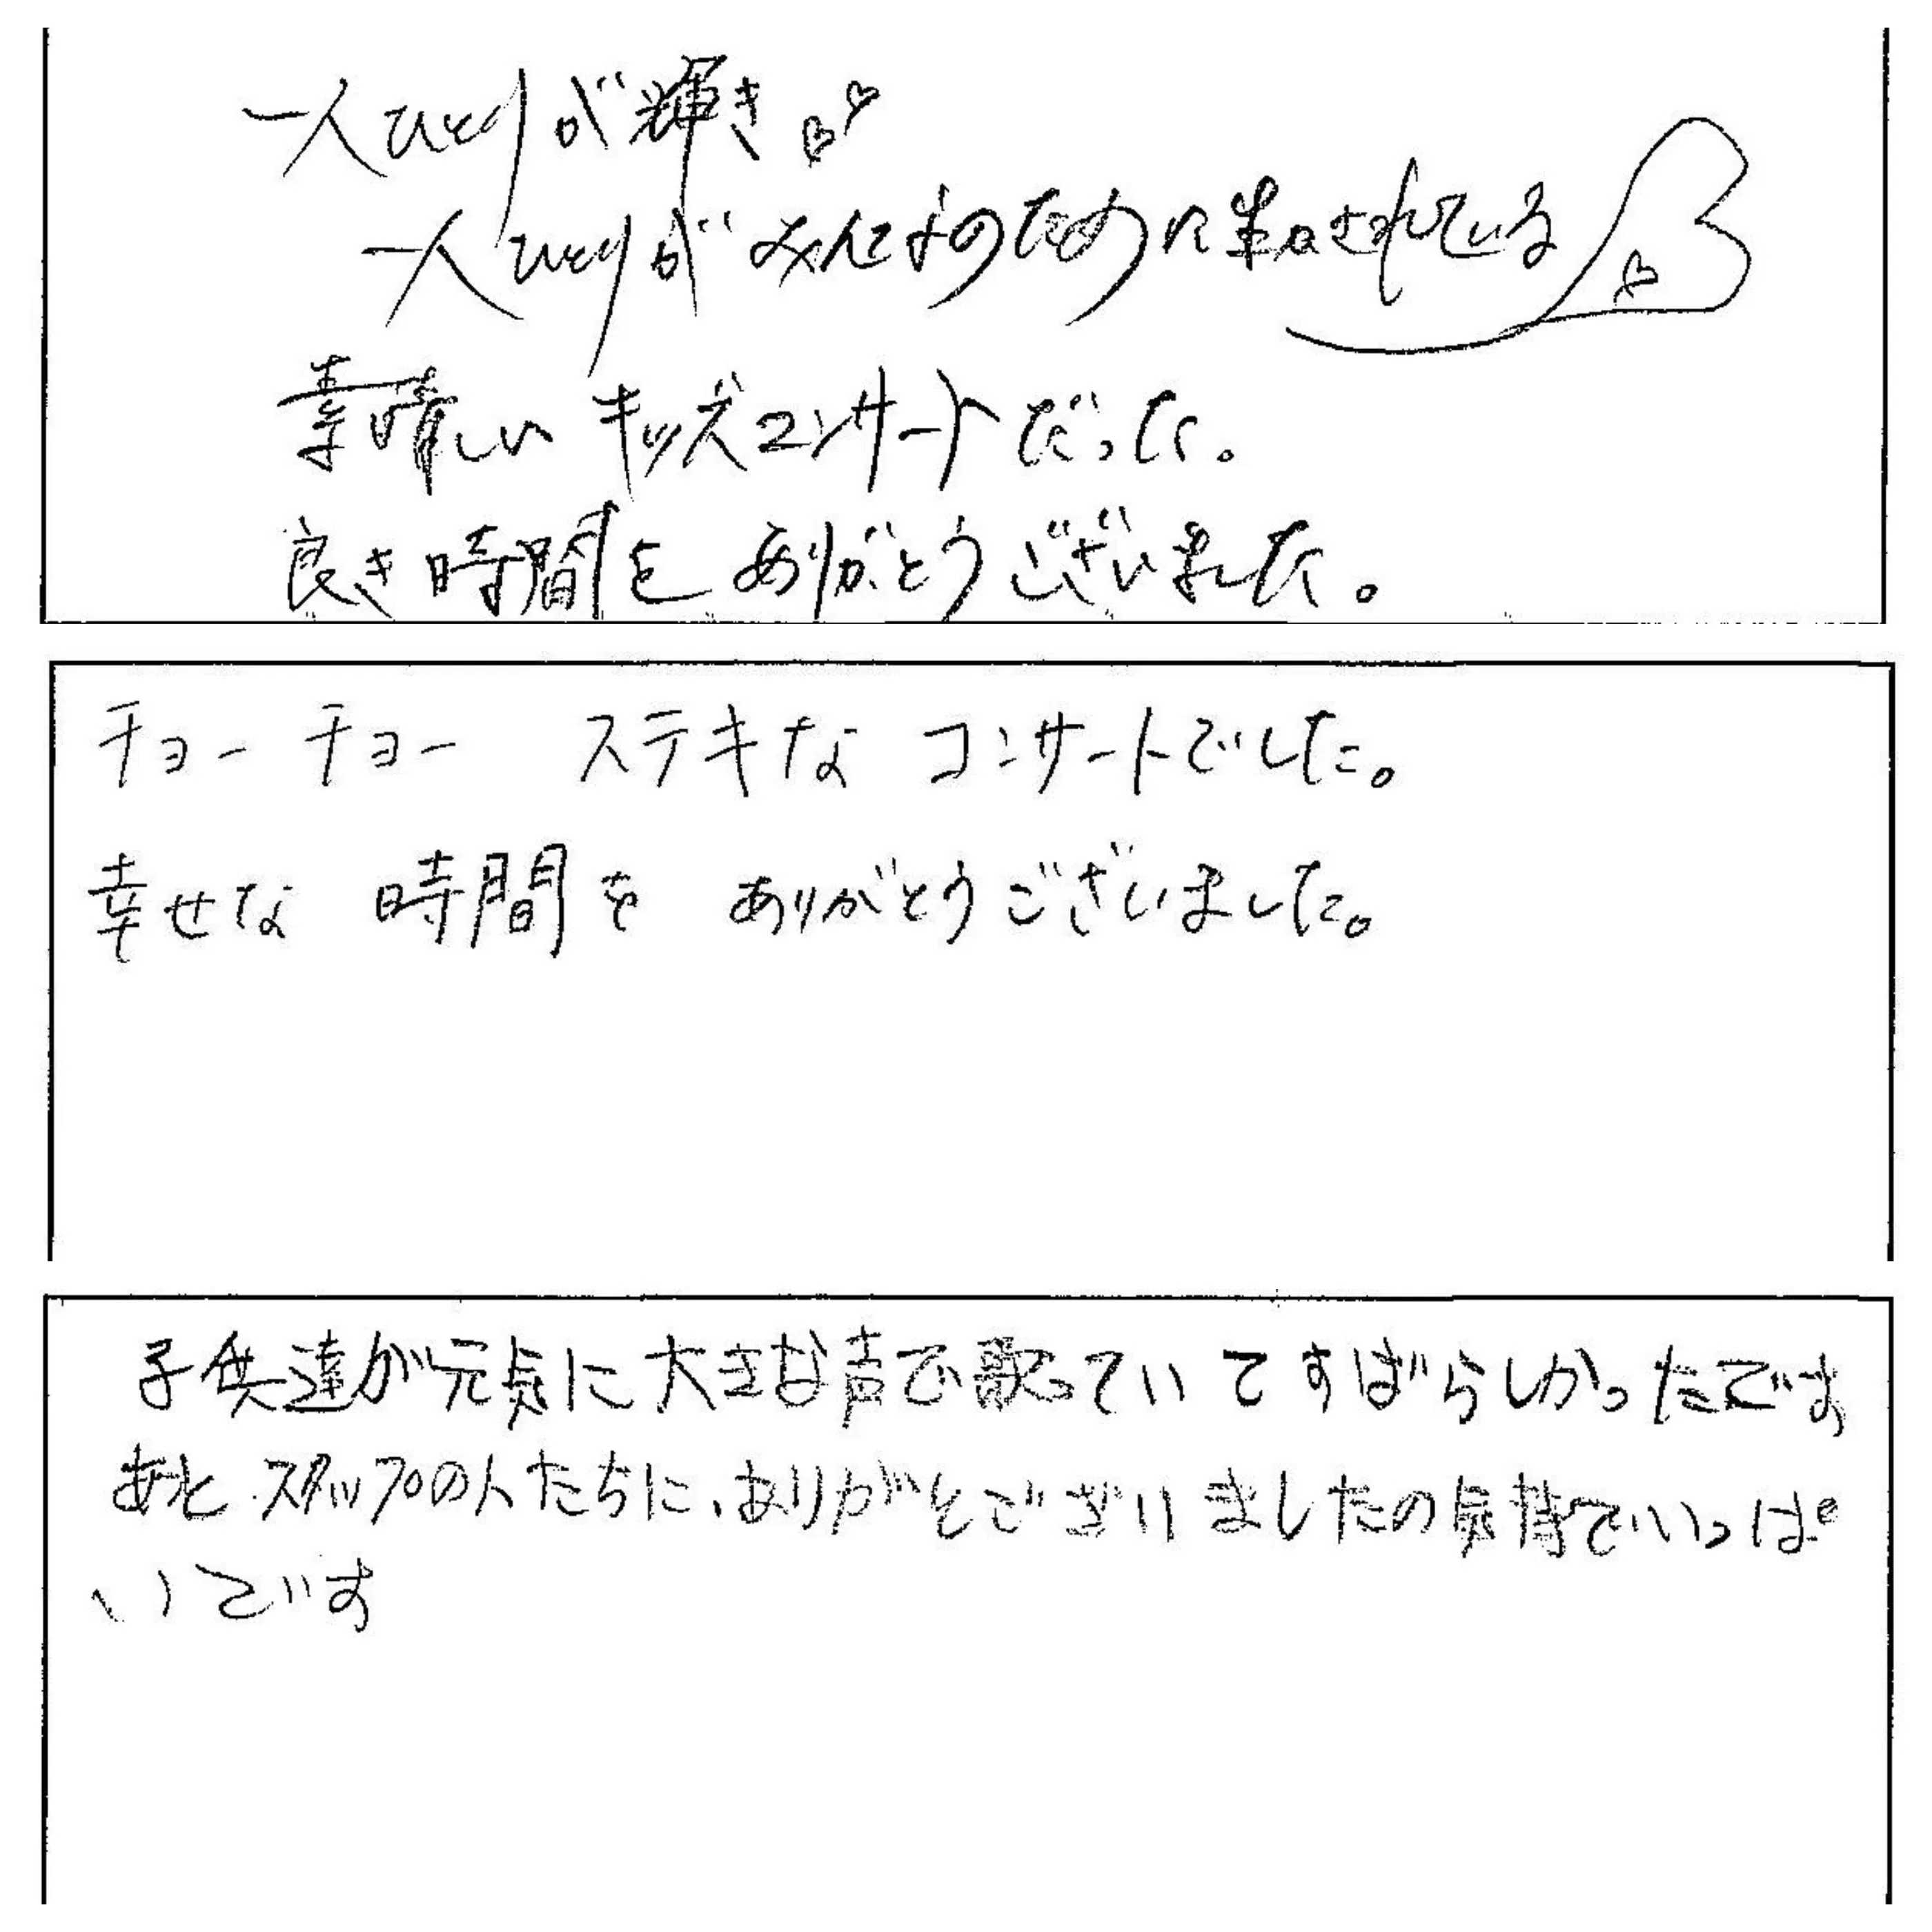 一人ひとりが輝き♡♡
一人ひとりがみんなのために生かされている♡
素晴しいキッズコンサートだった。
良き時間をありがとうございました。
チョーチョー ステキな コンサートでした。
幸せな 時間を ありがとうございました。
子供達が元気に大きな声で歌っていてすばらしかったです
あと、スタップの人たちに、ありがとございましたの気持でいっぱ
いです